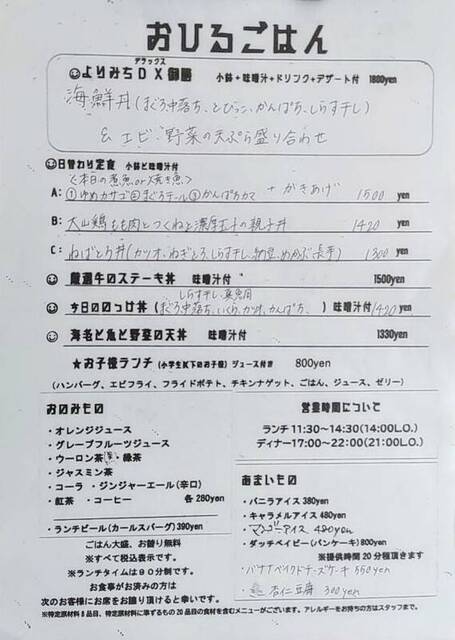 おひるごはん
デラックス
よりみちDX御膳 小鉢+味噌汁+ドリンク+デザート付 1800yen
海鮮丼(まぐろ中落ち、とびっこ、かんぱち、しらす干し)
& エビ、野菜の天ぷら盛り合わせ
日替わり定食 小鉢と味噌汁付
<本日の煮魚or焼き魚>
A: ①ゆめカサゴ②まぐろテール③かんぱちカマ +かきあげ 1500 yen
B: 大山鶏もも肉とつくねと濃厚玉子の親子丼 1420 yen
C: ねばとろ丼(カツオ、ねぎとろ、しらす干し、納豆、めかぶ、長芋) 1300 yen
厳選牛のステーキ丼 味噌汁付 1500yen
しらす干し、
今日ののっけ丼 (まぐろ中落ち、いくら、カツオ、かんぱち、) 味噌汁付 1420 yen
海老と魚と野菜の天丼 味噌汁付 1330yen
★お子様ランチ(小学生以下のお子様)ジュース付き 800yen
(ハンバーグ、エビフライ、フライドポテト、チキンナゲット、ごはん、ジュース、ゼリー)
おのみもの
・オレンジジュース
・グレープフルーツジュース
・ウーロン茶 ・緑茶
・ジャスミン茶
・コーラ ・ジンジャーエール(辛口)
・紅茶 ・コーヒー 各280yen
・ランチビール(カールスバーグ)390yen
ごはん大盛、お替り無料
※すべて税込表示です。
※ランチタイムは90分制です。
お食事がお済みの方は
次のお客様にお席をお譲り頂けると幸いです。
営業時間について
ランチ 11:30~14:30(14:00L.O.)
ディナー17:00~22:00(21:00L.O.)
あまいもの
・バニラアイス 380yen
・キャラメルアイス 480yen
・マンゴーアイス 480yen
・ダッチベイビー(パンケーキ)800yen
※提供時間20分程頂きます
・バナナベイクドチーズケーキ 550yen
杏仁豆腐 300yen
※特定原材料8品目、特定原材料に準ずるもの20品目の食材を含むメニューがございます。アレルギーをお持ちの方はスタッフまで。